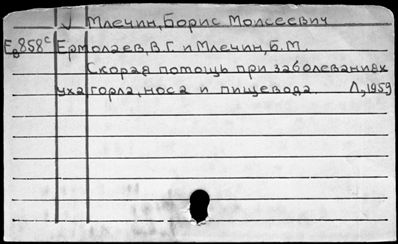 √ Млечин, Борис Моисеевич
Ев858с Ермолаев, В.Г. и Млечин, Б.М.
Скорая помощь при заболеваниях
уха горла, носа и пищевода Л, 1959